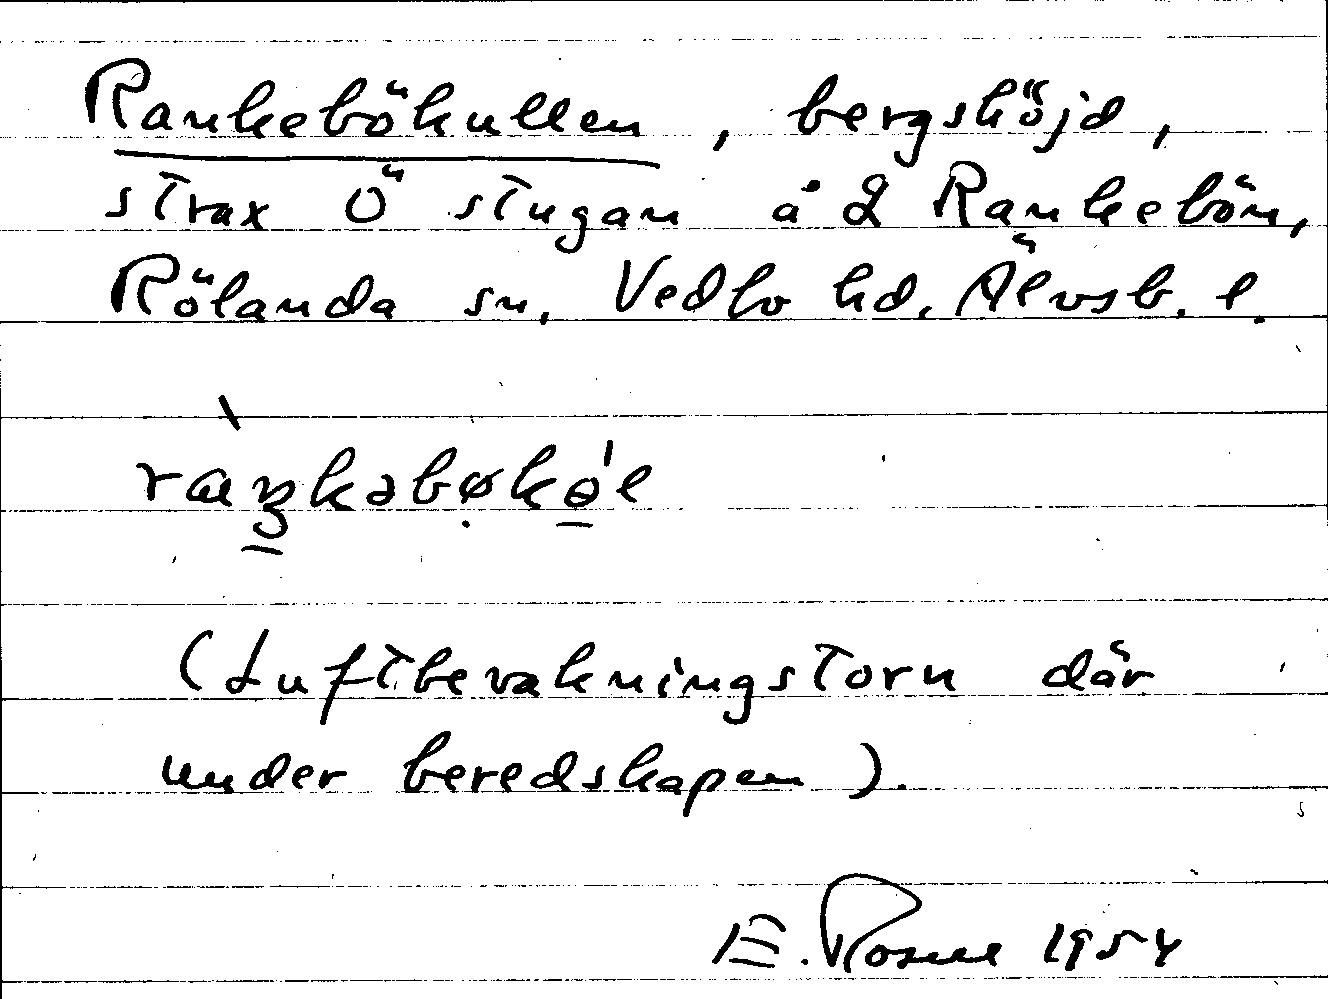 Rankebökullen, bergshöjd,
strax Ö stugan å 2 Rankebön,
Rölanda sn, Vedbo hd. Älvsb. l.
(Luftbevakningstorn där
under beredskapen).
E. Rosell 1954